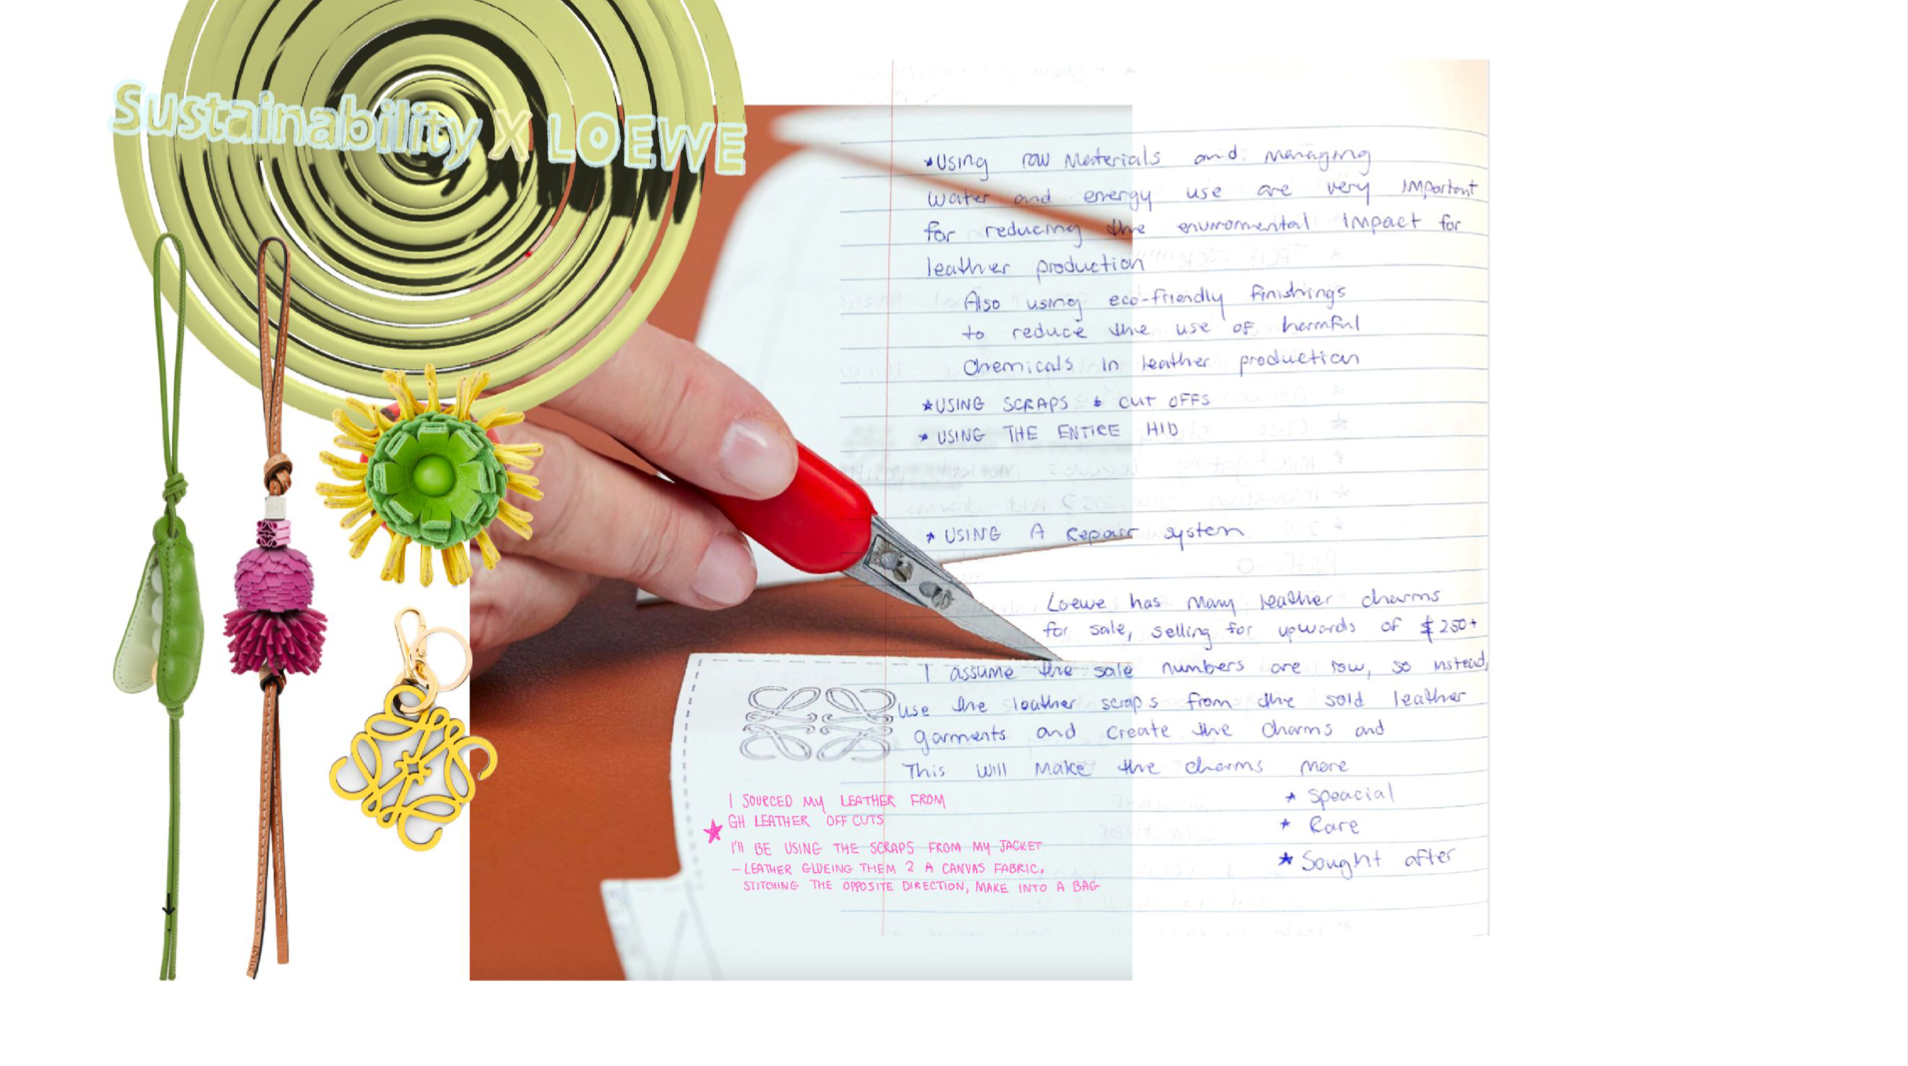 Sustainability X LOEWE
*Using raw Materials and managing
water and energy use are very important
for reducing the enviromental impact for
leather production
Also using eco-friendly finishings
to reduce the use of harmful
chemicals in leather production
*USING SCRAPS & CUT OFFS
* USING THE ENTIRE HID
* USING A Repair system
Loewe has many leather charms
for sale, selling for upwards of $250+
I assume the sale numbers are low, so instead,
use the leather scraps from the sold leather
garments and create the charms and
This will make the charms more
* Speacial
* Rare
* Sought after
I SOURCED MY LEATHER FROM
GH LEATHER OFF CUTS
I'll BE USING THE SCRAPS FROM MY JACKET
- LEATHER GLUEING THEM 2 A CANVAS FABRIC,
STITCHING THE OPPOSITE DIRECTION, MAKE INTO A BAG